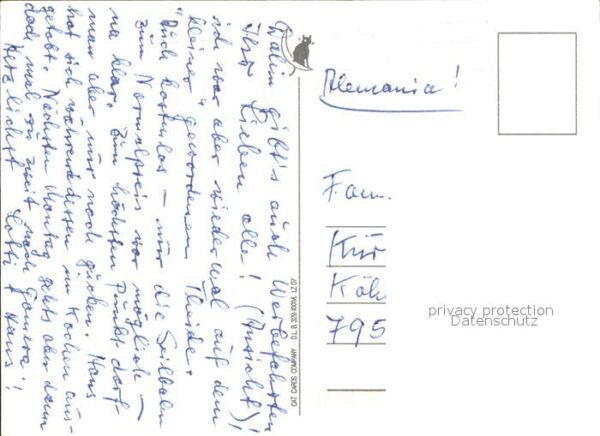 Dahin gibt's auch Werbefahrten
Ihr Lieben alle! (Ansicht)!
ich war aber wieder mal auf dem
kleiner gewordenen Theide.
"Auch kostenlos – nur die Seilbahn
zum Normalpreis war möglich –
na klar. Zum höchsten Punkt darf
man aber nur noch gucken. Hans
hat sich währenddessen im Kochen aus-
getobt. Nächsten Montag gehts aber dann
doch mal zu zweit nach Gomera!
Herzlichst Lotti + Hans!
CAT CARDS COMPANY D.L. B.
Alemania!
Fam.
Kür
Köh
795
privacy protection
Datenschutz